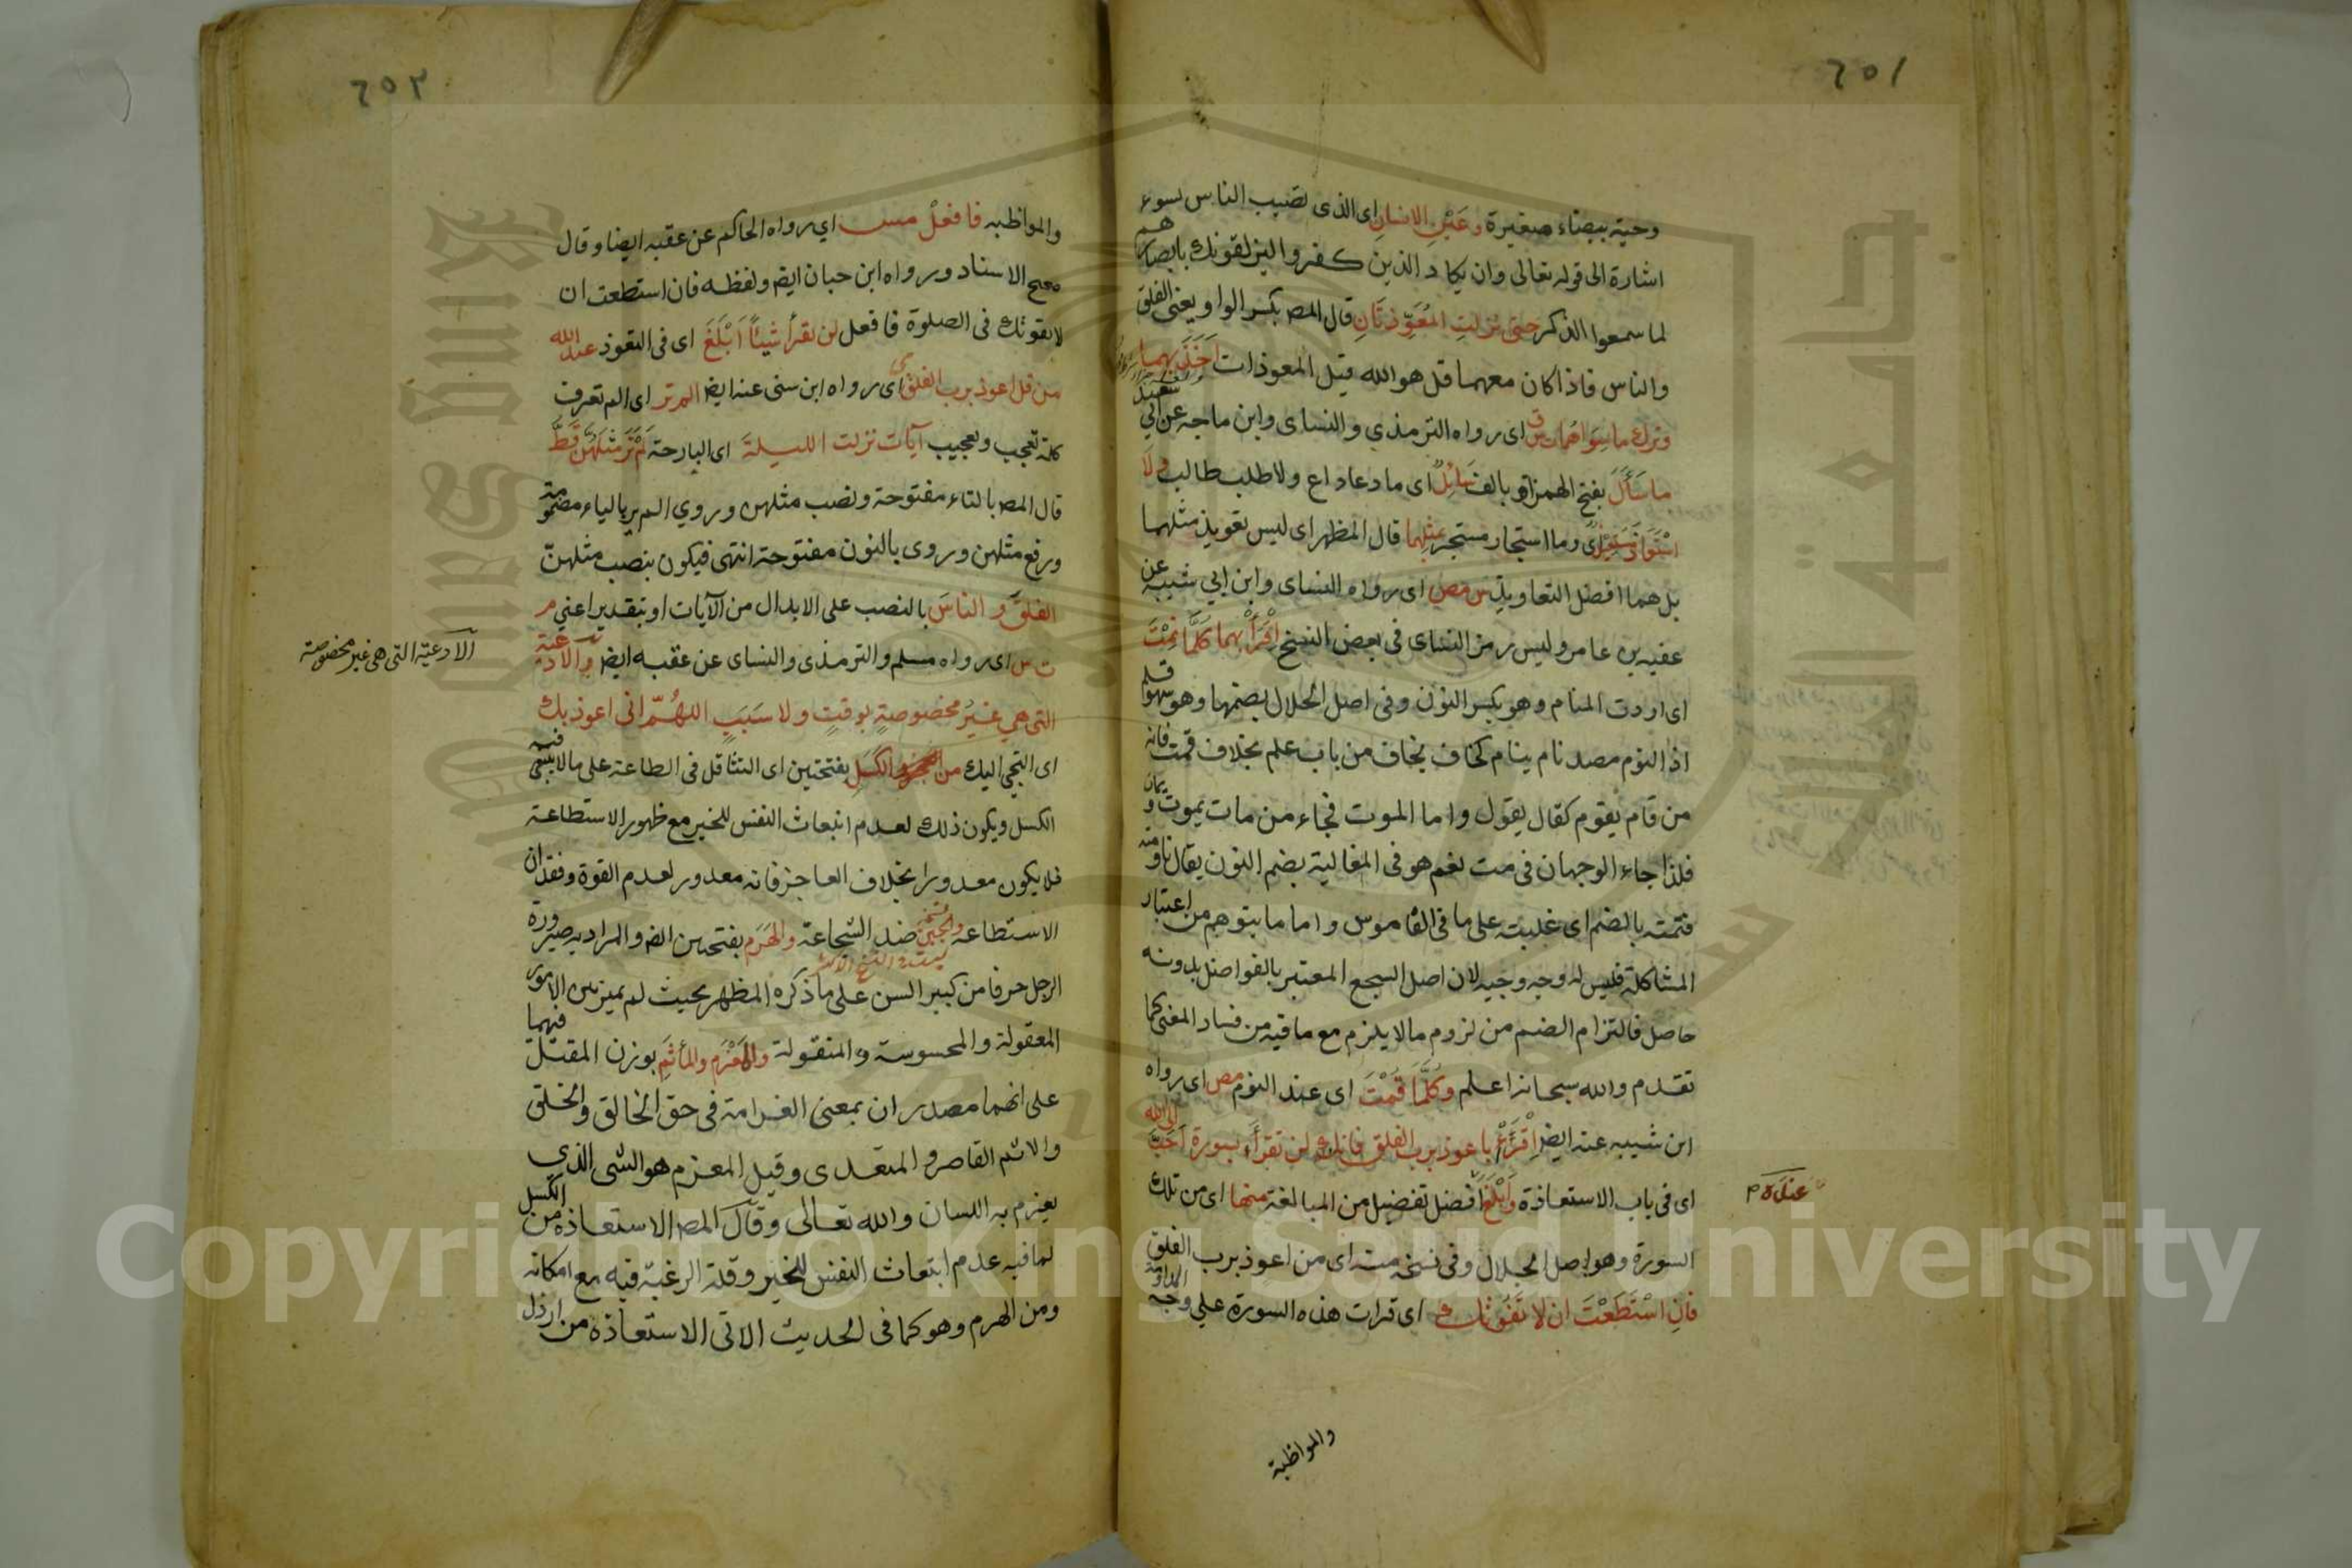 ٦٥١
وحية بيضاء صغيرة وعَيْنِ الانسانِ اى الذى تصيب الناس بسوء
اشارة الى قوله تعالى وان يكاد الذين كفروا ليزلقونك بابصارهم
لما سمعوا الذكر حتى نزلتِ المُعَوِّذتَانِ قال المص بكسر الواو يعنى الفلق
والناس فاذا كان معهما قل هو الله قيل المعوذات اَخَذَ بهما
وترك ما سِوَاهُمَا ت س ق اى رواه الترمذي والنساى وابن ماجه عن ابي سعيد
ما سَأَلَ بفتح الهمزة وبالف سَائِلٌ اى ما دعا داع ولا طلب طالب وَلَا
اسْتَعَاذَ مُسْتَعِيذٌ اى وما استجار مستجير بمثلهما قال المظهر اى ليس تعويذ مثلهما
بل هما افضل التعاويذ س مص اى رواه النساى وابن ابي شيبه عن
عقبه بن عامر وليس رمز النساى في بعض النسخ اِقْرَأْ بهما كلَّمَا نِمْتَ
اى اردت المنام وهو بكسر النون وفى اصل الجلال بضمها وهو سهو قلم
اذ النوم مصدر نام ينام كخاف يخاف من باب علم بخلاف قمت فانه
من قام يقوم كقال يقول واما الموت فجاء من مات يموت ويمات
فلذا جاء الوجهان فى مت نعم هو فى المغالبة بضم النون يقال ناومته
فنمته بالضم اى غلبته على ما فى القاموس واما ما يتوهم من اعتبار
المشاكلة فليس له وجه وجيه لان اصل السجع المعتبر بالفواصل بدونه
حاصل فالتزام الضم من لزوم مالا يلزم مع ما فيه من فساد المعنى كما
تقدم والله سبحانه اعلم وكُلَّمَا قُمْتَ اى عند النوم مص اى رواه
ابن شيبه عنه ايضا اِقْرَأْ باعوذ برب الفلق فانك لن تقرأ بسورة اَحَبَّ الى الله
اى فى باب الاستعاذة وَابْلَغَ افضل تفضيل من المبالغة منها اى من تلك
عنده
السورة وهو اصل الجلال وفى نسخه منه اى من اعوذ برب الفلق
فَانِ اسْتَطَعْتَ ان لا تَفُوْتَكَ اى قرات هذه السورة على وجه المداومة
والمواظبة
٦٥٢
والمواظبه فافعلْ مس اي رواه الحاكم عن عقبه ايضا وقال
صحيح الاسناد ورواه ابن حبان ايضا ولفظه فان استطعت ان
لا تفوتك فى الصلوة فافعل لن تقرأ شيئًا اَبْلَغَ اى فى التعوذ عند الله
من قل اعوذ برب الفلق ى اى رواه ابن سنى عنه ايضا الم تر اى الم تعرف
كلمة تعجب وتعجيب آيات نزلت الليلة اى البارحة لَمْ يُرَ مثلهُنَّ قَطُّ
قال المص بالتاء مفتوحة ونصب مثلهن وروي الم ير بالياء مضمومة
ورفع مثلهن وروى بالنون مفتوحة انتهى فيكون بنصب مثلهنّ
الفلقَ و الناسَ بالنصب على الابدال من الآيات او بتقدير اعني م
ت س اى رواه مسلم والترمذى والنساى عن عقبه ايضا والادعية
الادعيّة التى هى غير مخصوصة
التى هي غيرُ مخصوصةٍ بوقتٍ ولا سَبَبٍ اللهُمّ انى اعوذ بك
اى التجى اليك من العجز والكَسَلِ بفتحتين اى التثاقل فى الطاعة على ما لا ينبغى فيه
الكسل ويكون ذلك لعدم انبعاث النفس للخير مع ظهور الاستطاعة
فلا يكون معدورا بخلاف العاجز فانه معدور لعدم القوة وفقدان
الاستطاعة والجُبْنِ ضد الشجاعة والهَرَمِ بفتحتين ايضا والمراد به صيرورة
الرجل خرفا من كبير السن على ما ذكره المظهر بحيث لم يميز بين الامور
المعقولة والمحسوسة والمنقولة والمَغْرَمِ والمأثَمِ بوزن المقتل فيهما
على انهما مصدران بمعنى الغرامة فى حق الخالق والخلق
والاثم القاصر والمتعدى وقيل المغرم هو الشى الذي
يغرم به اللسان والله تعالى وقال المص الاستعاذه من الكسل
لما فيه عدم انبعاث النفس للخير وقلة الرغبة فيه مع امكانه
ومن الهرم وهو كما فى الحديث الاتى الاستعاذه من ارذل
Copyright © King Saud University